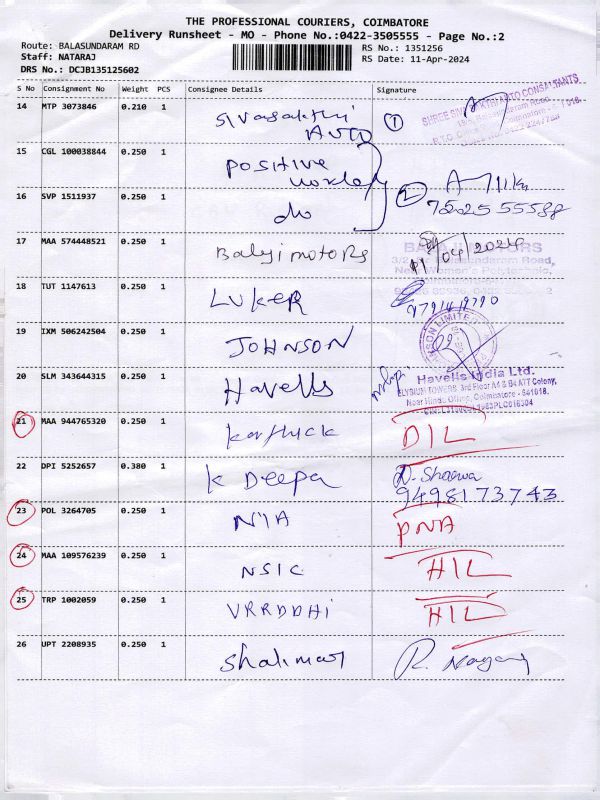 THE PROFESSIONAL COURIERS, COIMBATORE
Delivery Runsheet - MO - Phone No.:0422-3505555 - Page No.:2
Route: BALASUNDARAM RD
RS No.: 1351256
Staff: NATARAJ
RS Date: 11-Apr-2024
DRS No.: DCJB135125602
S No Consignment No Weight PCS Consignee Details Signature
14 MTP 3073846 0.210 1 Sivasakthi Auto 1
15 CGL 100038844 0.250 1 Positive
16 SVP 1511937 0.250 1 do 2 75025 55588
17 MAA 574448521 0.250 1 Balaji motors 11/04/2024
18 TUT 1147613 0.250 1 LUKER
19 IXM 506242504 0.250 1 JOHNSON
20 SLM 343644315 0.250 1 Havells
Havells India Ltd.
ELYSIUM TOWERS, 3rd Floor A4 & B4 A77 Colony,
Near Hindu Office, Coimbatore - 641018.
21 MAA 944765320 0.250 1 Karthick DIL
22 DPI 5252657 0.380 1 K Deepa
9498173743
23 POL 3264705 0.250 1 NIA PNA
24 MAA 109576239 0.250 1 NSIC HIL
25 TRP 1002059 0.250 1 VRRDDHI HIL
26 UPT 2208935 0.250 1 Shalimar